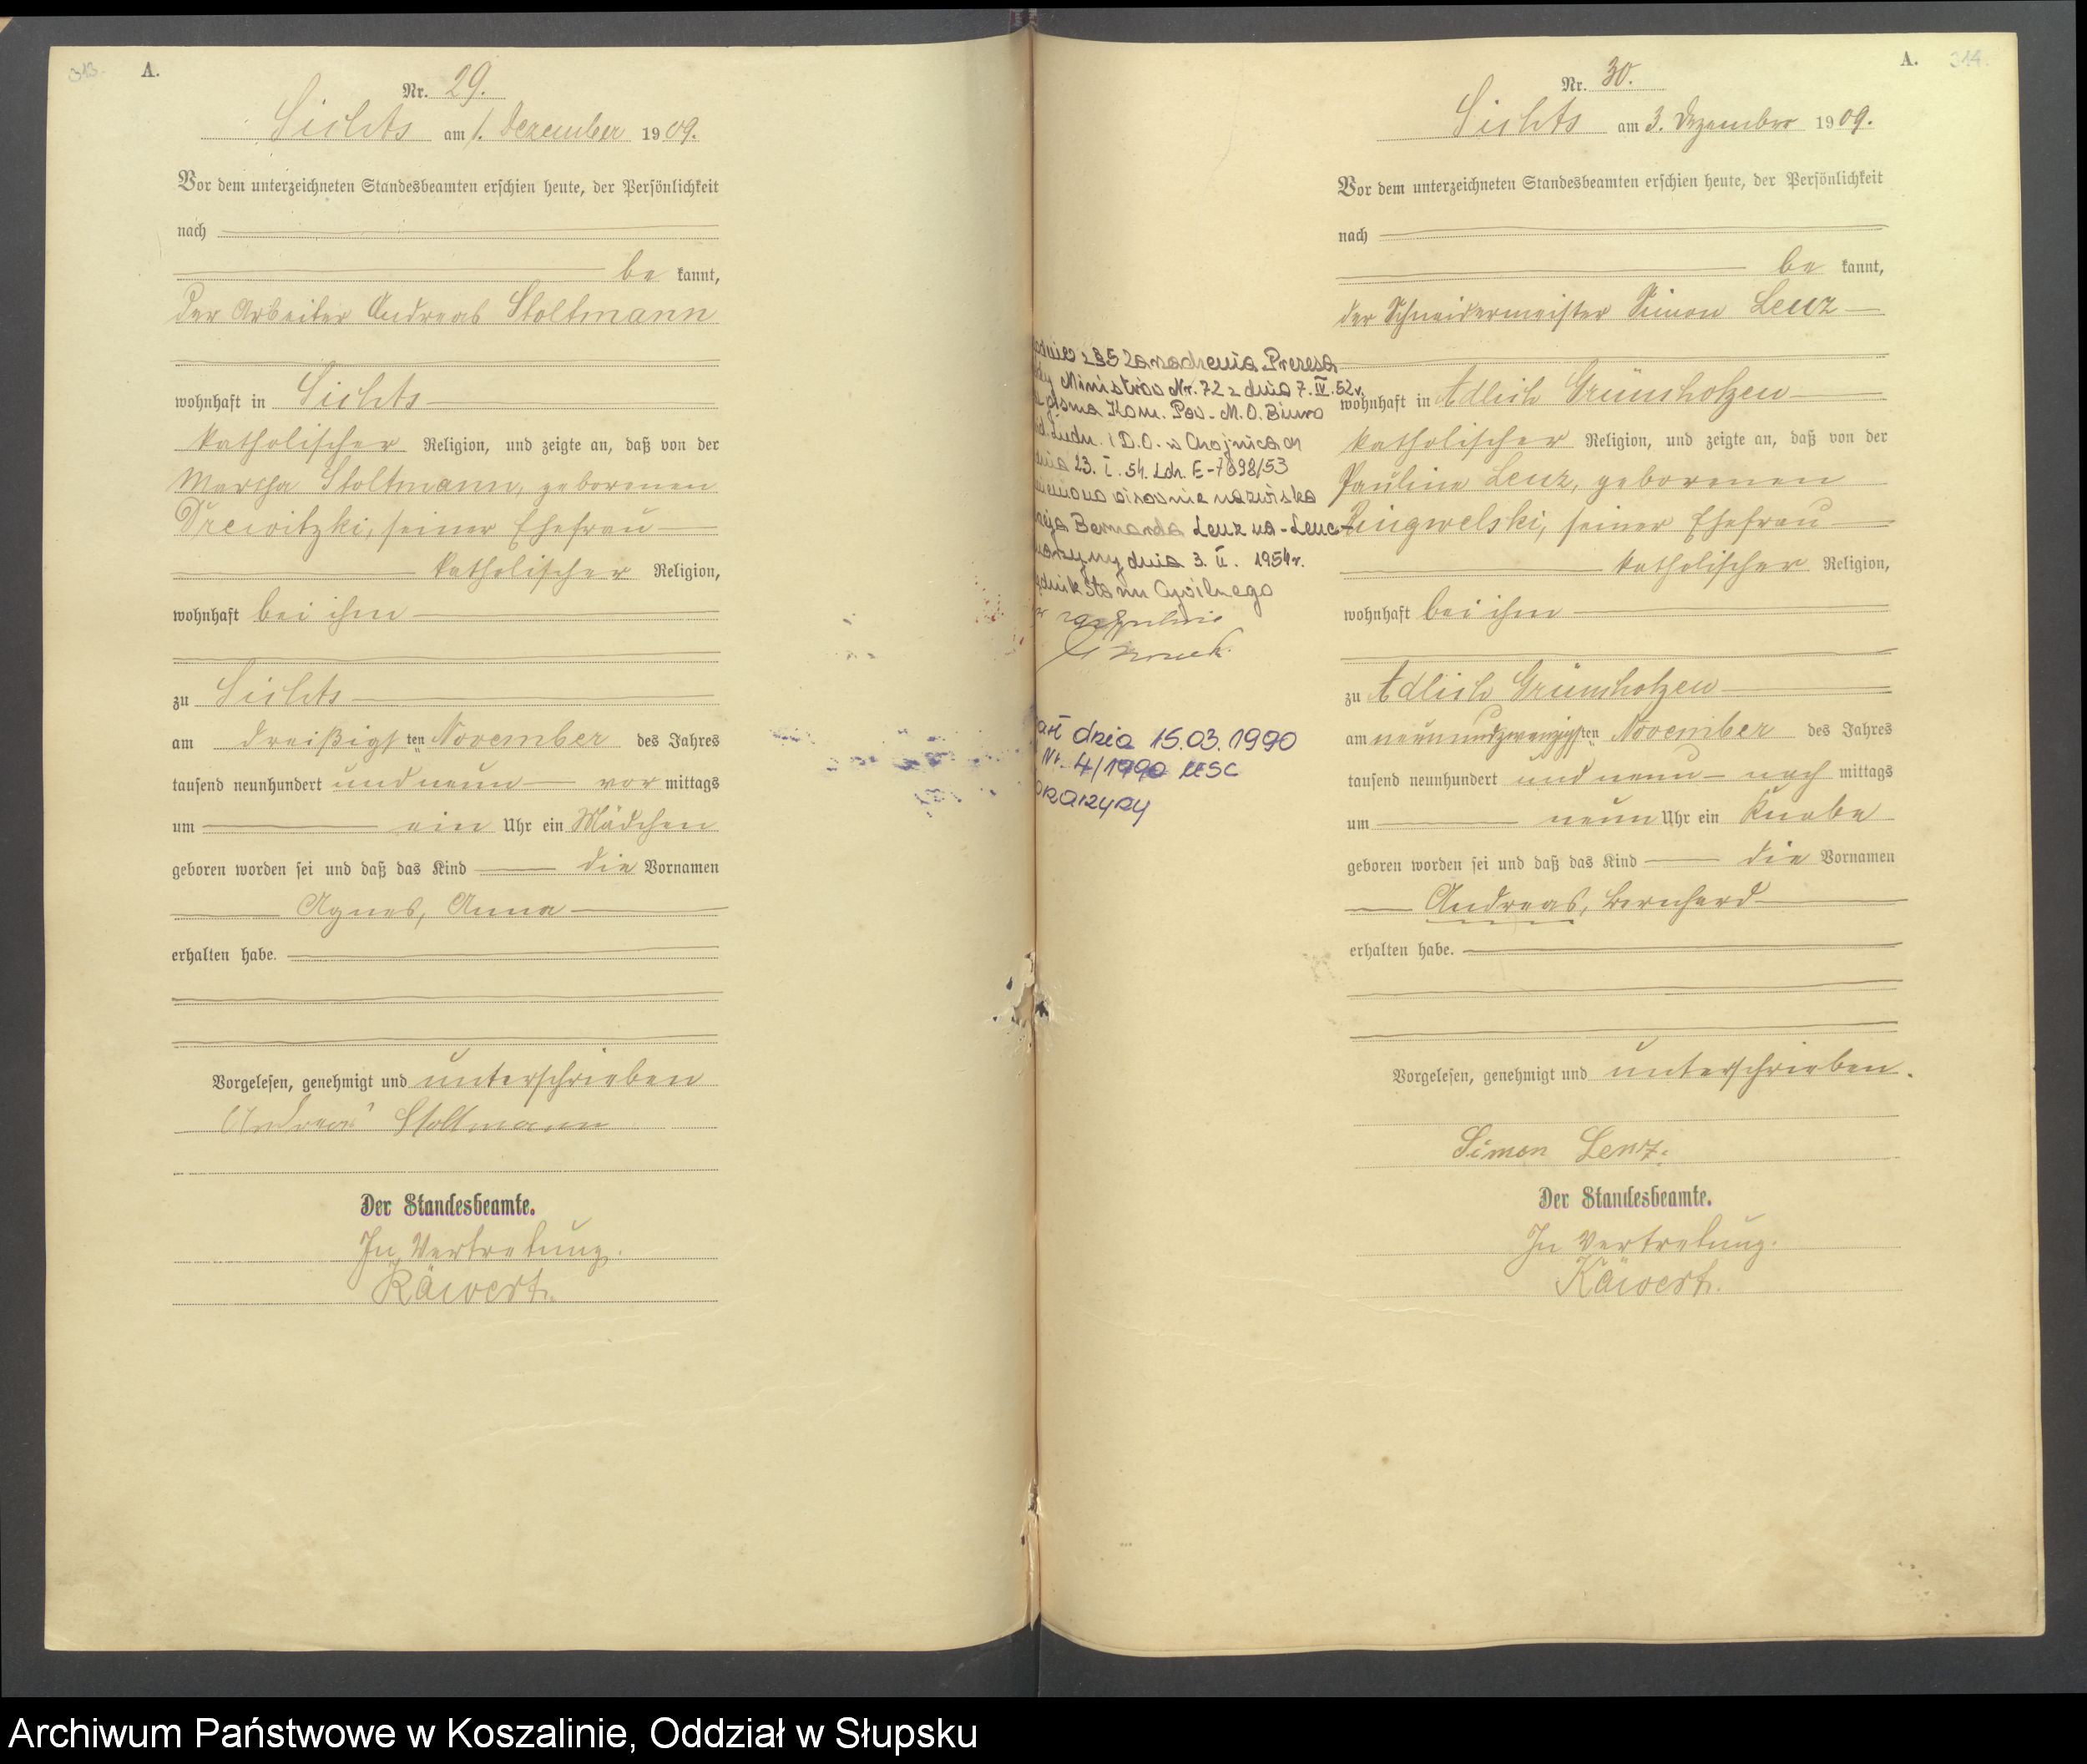 A.
Nr. 29.
Sichts am 1. Dezember 1909.
Vor dem unterzeichneten Standesbeamten erschien heute, der Persönlichkeit
nach
be kannt,
der Arbeiter Andreas Stoltmann
wohnhaft in Sichts
katholischer Religion, und zeigte an, daß von der
Martha Stoltmann, geborenen
Drewitzki, seiner Ehefrau
katholischer Religion,
wohnhaft bei ihm
zu Sichts
am dreißigsten November des Jahres
tausend neunhundert und neun vor mittags
um ein Uhr ein Mädchen
geboren worden sei und daß das Kind die Vornamen
Agnes, Anna
erhalten habe.
Vorgelesen, genehmigt und unterschrieben
Andreas Stoltmann
Der Standesbeamte.
In Vertretung.
Käwert.
A. 314.
Nr. 30.
Sichts am 3. Dezember 1909.
Vor dem unterzeichneten Standesbeamten erschien heute, der Persönlichkeit
nach
be kannt,
der Schneidermeister Simon Lenz
wohnhaft in Adlich Grünholzen
katholischer Religion, und zeigte an, daß von der
Pauline Lenz, geborenen
Ringwelski, seiner Ehefrau
katholischer Religion,
wohnhaft bei ihm
zu Adlich Grünholzen
am neunundzwanzigsten November des Jahres
tausend neunhundert und neun nach mittags
um neun Uhr ein Knabe
geboren worden sei und daß das Kind die Vornamen
Andreas, Bernhard
erhalten habe.
Vorgelesen, genehmigt und unterschrieben.
Simon Lenz.
Der Standesbeamte.
In Vertretung.
Käwert.
z §5 Zarządzenia Prezesa
Ministrów Nr. 72 z dnia 7.IV.52r.
pisma Kom. Pow. M.O. Biuro
Ludn. i D.O. w Chojnicach
dnia 23. I. 54. Ldz. E-7898/53
pisownię nazwiska
Bernarda Lenz na - Lenc -
dnia 3. II. 1954r.
Stanu Cywilnego
dnia 15.03.1990
Nr. 4/1990 USC
Archiwum Państwowe w Koszalinie, Oddział w Słupsku